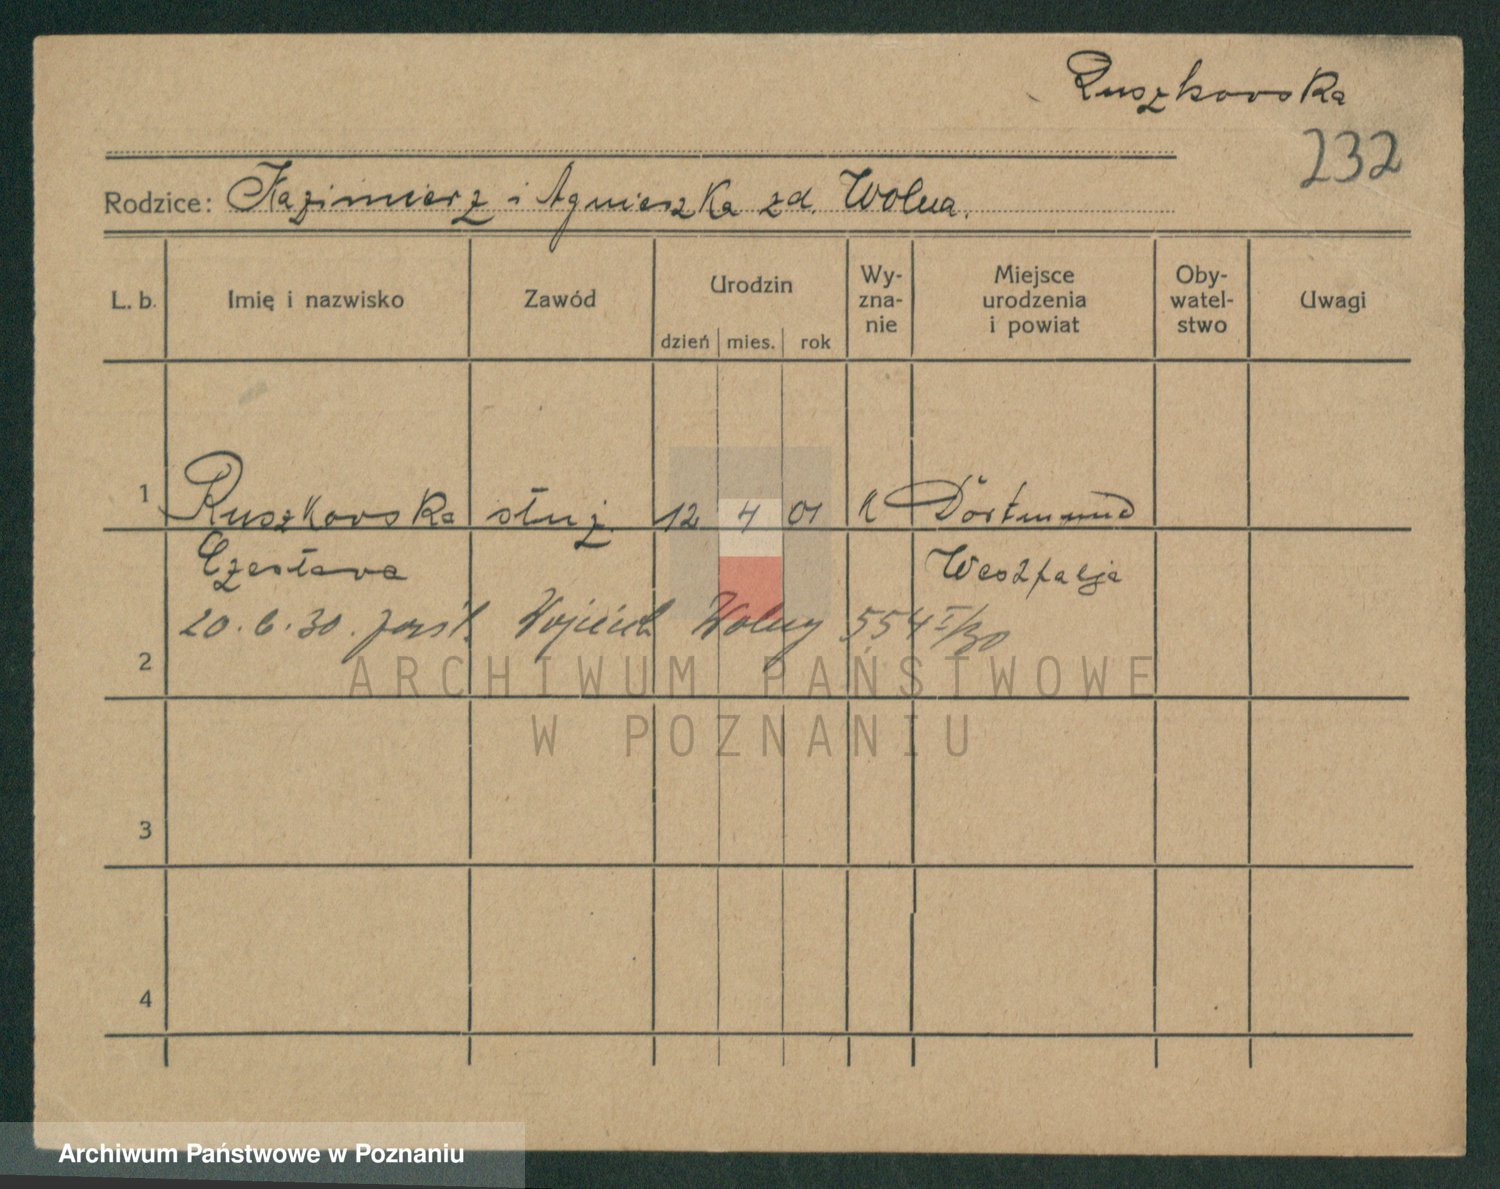 Ruszkowska
232
Rodzice: Kazimierz i Agnieszka zd. Wolna.
L. b. Imię i nazwisko Zawód Urodzin dzień mies. rok Wy-zna-nie Miejsce urodzenia i powiat Oby-watel-stwo Uwagi
1 Ruszkowska służ. 12 4 01 K Dortmund
Czesława Westfalja
20.6.30. Wojciech Wolny 554 I/30
2
ARCHIWUM PAŃSTWOWE
W POZNANIU
3
4
Archiwum Państwowe w Poznaniu